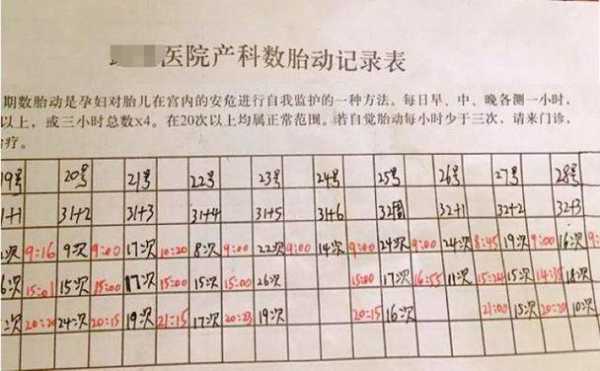 医院产科数胎动记录表
期数胎动是孕妇对胎儿在宫内的安危进行自我监护的一种方法。每日早、中、晚各测一小时，
以上，或三小时总数x4。在20次以上均属正常范围。若自觉胎动每小时少于三次，请来门诊，
治疗。
19号 20号 21号 22号 23号 24号 25号 26号 27号 28号
31+1 31+2 31+3 31+4 31+5 31+6 32周 32+1 32+2 32+3
次 9:16 9次 9:00 17次 10:20 8次 9:00 22次 9:00 14次 9:00 24次 9:00 24次 8:45 19次 9:00 16次 9:
次 15:01 15次 15:00 17次 15:00 15次 15:00 26次 15:00 17次 16:55 11次 15:24 15次 18次
次 20:20 24次 20:15 19次 21:15 17次 20:23 19次 20:15 16次 21:00 15次 10次